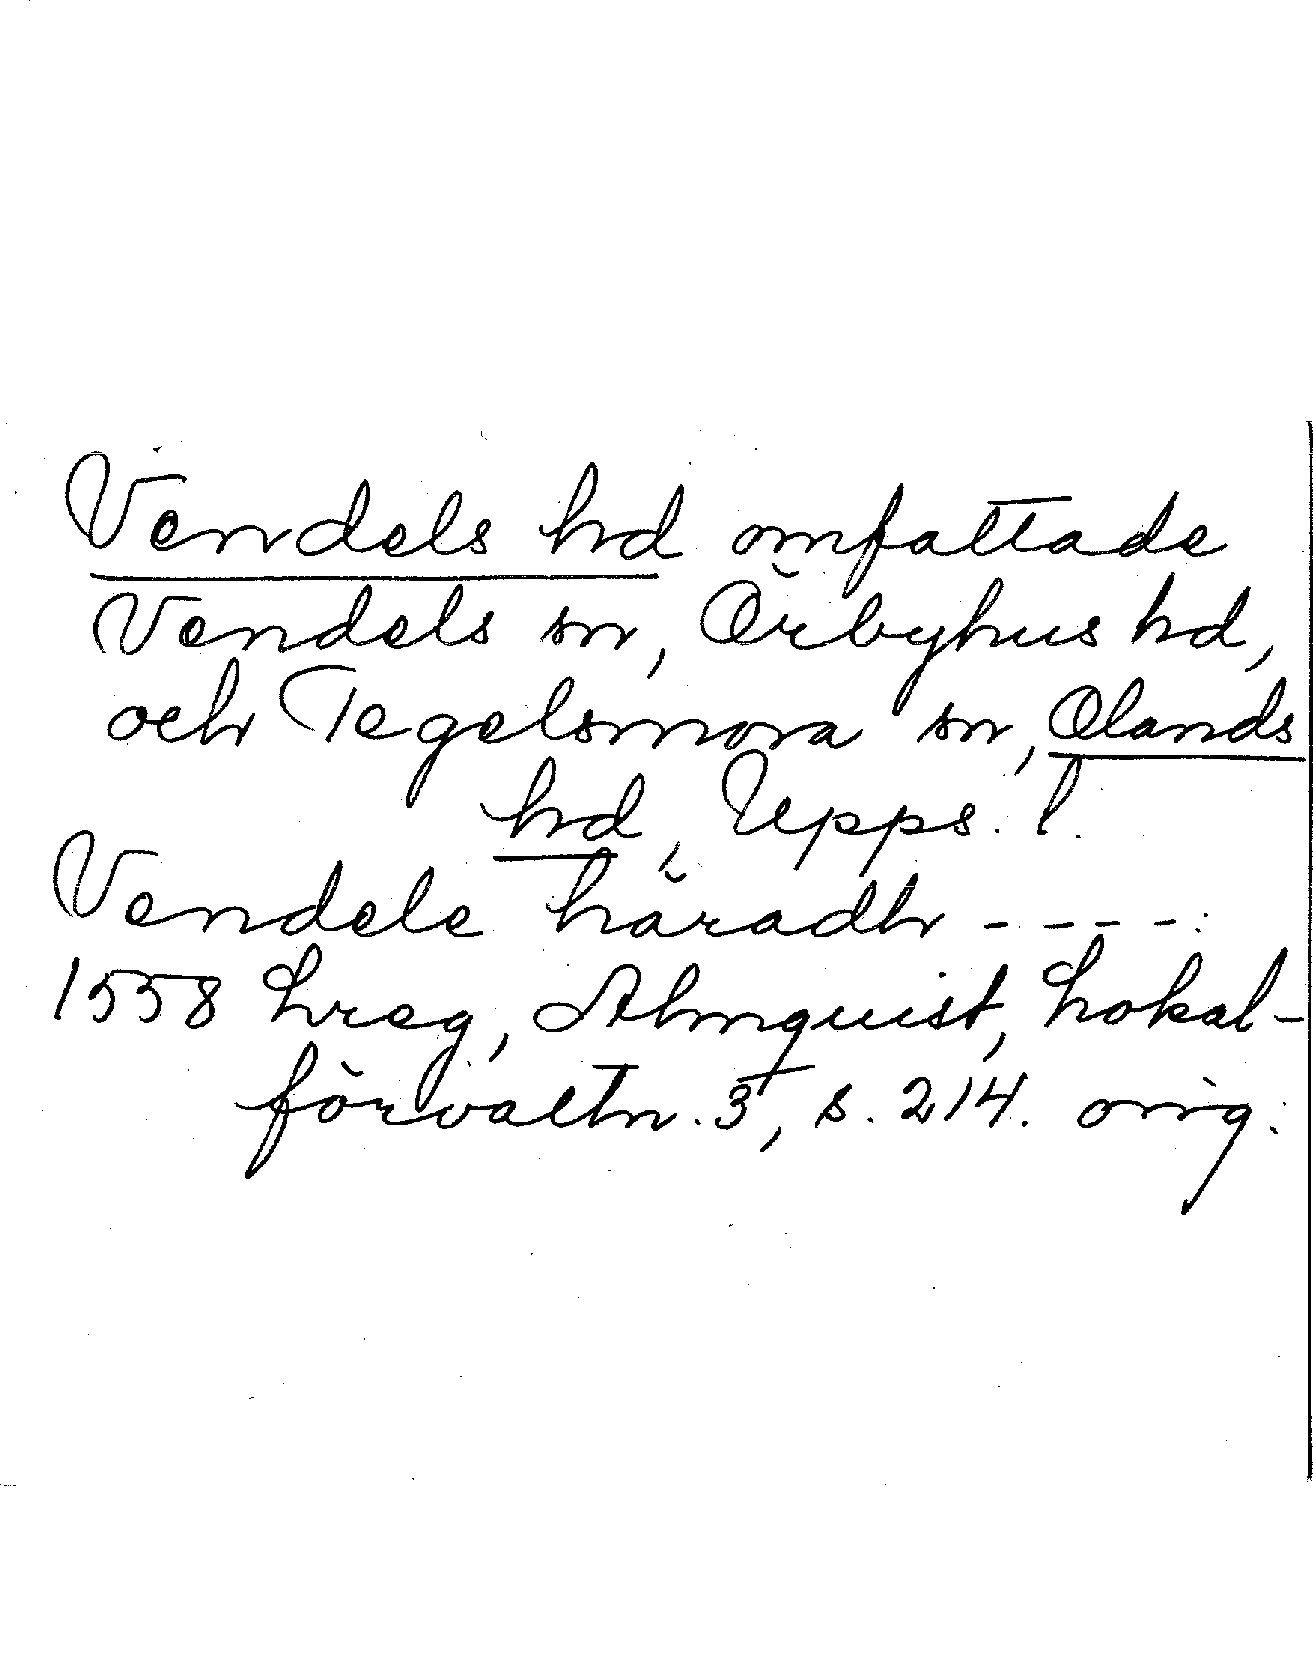 Vendels hd omfattade
Vendels sn, Örbyhus hd,
och Tegelsmora sn, Olands
hd, Upps. l.
Vendele häradh - - - - :
1558 Lreg, Almquist, Lokal-
förvaltn. 3, s. 214. orig.